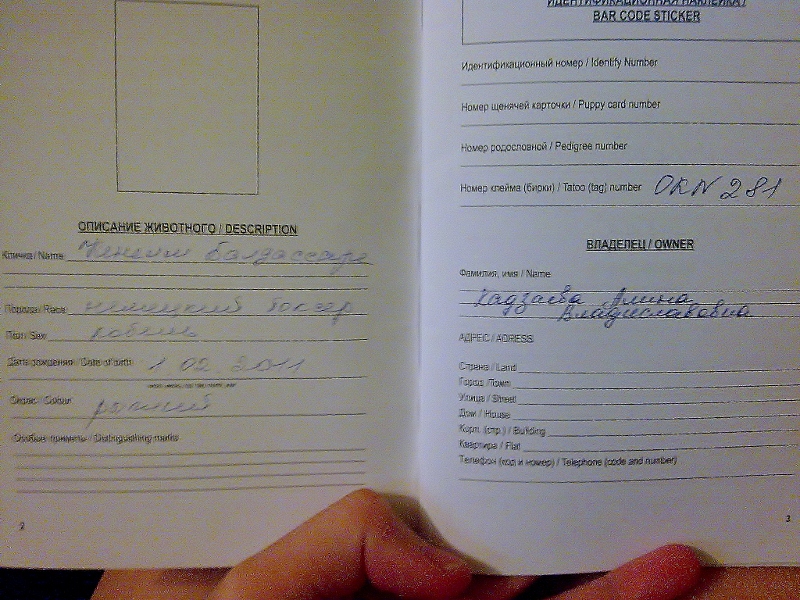 ОПИСАНИЕ ЖИВОТНОГО / DESCRIPTION
Кличка / Name балдассаре
Порода / Race немецкий боксер
Пол / Sex кобель
Дата рождения / Date of birth 1.02.2011
Окрас / Colour рыжий
Особые приметы / Distinguishing marks
2
ИДЕНТИФИКАЦИОННАЯ НАКЛЕЙКА /
BAR CODE STICKER
Идентификационный номер / Identify Number
Номер щенячей карточки / Puppy card number
Номер родословной / Pedigree number
Номер клейма (бирки) / Tatoo (tag) number OKN 281
ВЛАДЕЛЕЦ / OWNER
Фамилия, имя / Name
Хадзаева Алина
Владиславовна
АДРЕС / ADRESS
Страна / Land
Город /Town
Улица / Street
Дом / House
Корп. (стр.) / Building
Квартира / Flat
Телефон (код и номер) / Telephone (code and number)
3